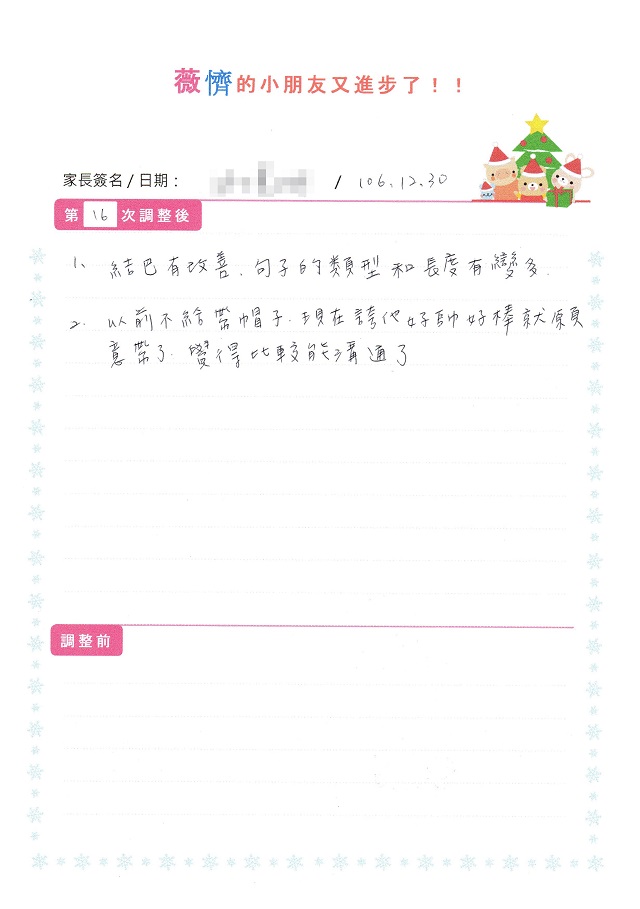 薇懠的小朋友又進步了！！
家長簽名/日期： / 106.12.30
第 16 次調整後
1. 結巴有改善、句子的類型和長度有變多.
2. 以前不給帶帽子.現在誇他好帥好棒就願
意帶了.覺得比較能溝通了
調整前